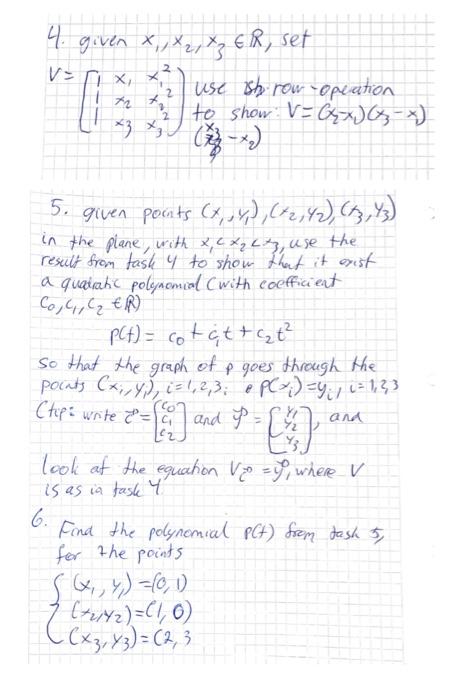 4. given x₁, x₂, x₃ ∈ ℝ, set
V = [1 x₁ x₁²
1 x₂ x₂²
1 x₃ x₃²] use row-operation
to show: V = (x₂-x₁)(x₃-x₁)
(x₃-x₂)
5. given points (x₁, y₁), (x₂, y₂), (x₃, y₃)
in the plane, with x₁ < x₂ < x₃, use the
result from task 4 to show that it exist
a quadratic polynomial (with coefficient
c₀, c₁, c₂ ∈ ℝ)
p(t) = c₀ + c₁t + c₂t²
so that the graph of p goes through the
points (xᵢ, yᵢ), i=1,2,3: p(xᵢ) = yᵢ, i=1,2,3
(tip: write c⃗ = [c₀ c₁ c₂] and y⃗ = [y₁ y₂ y₃], and
look at the equation Vc⃗ = y⃗, where V
is as in task 4.
6. Find the polynomial p(t) from task 5,
for the points
{ (x₁, y₁) = (0, 1)
(x₂, y₂) = (1, 0)
(x₃, y₃) = (2, 3